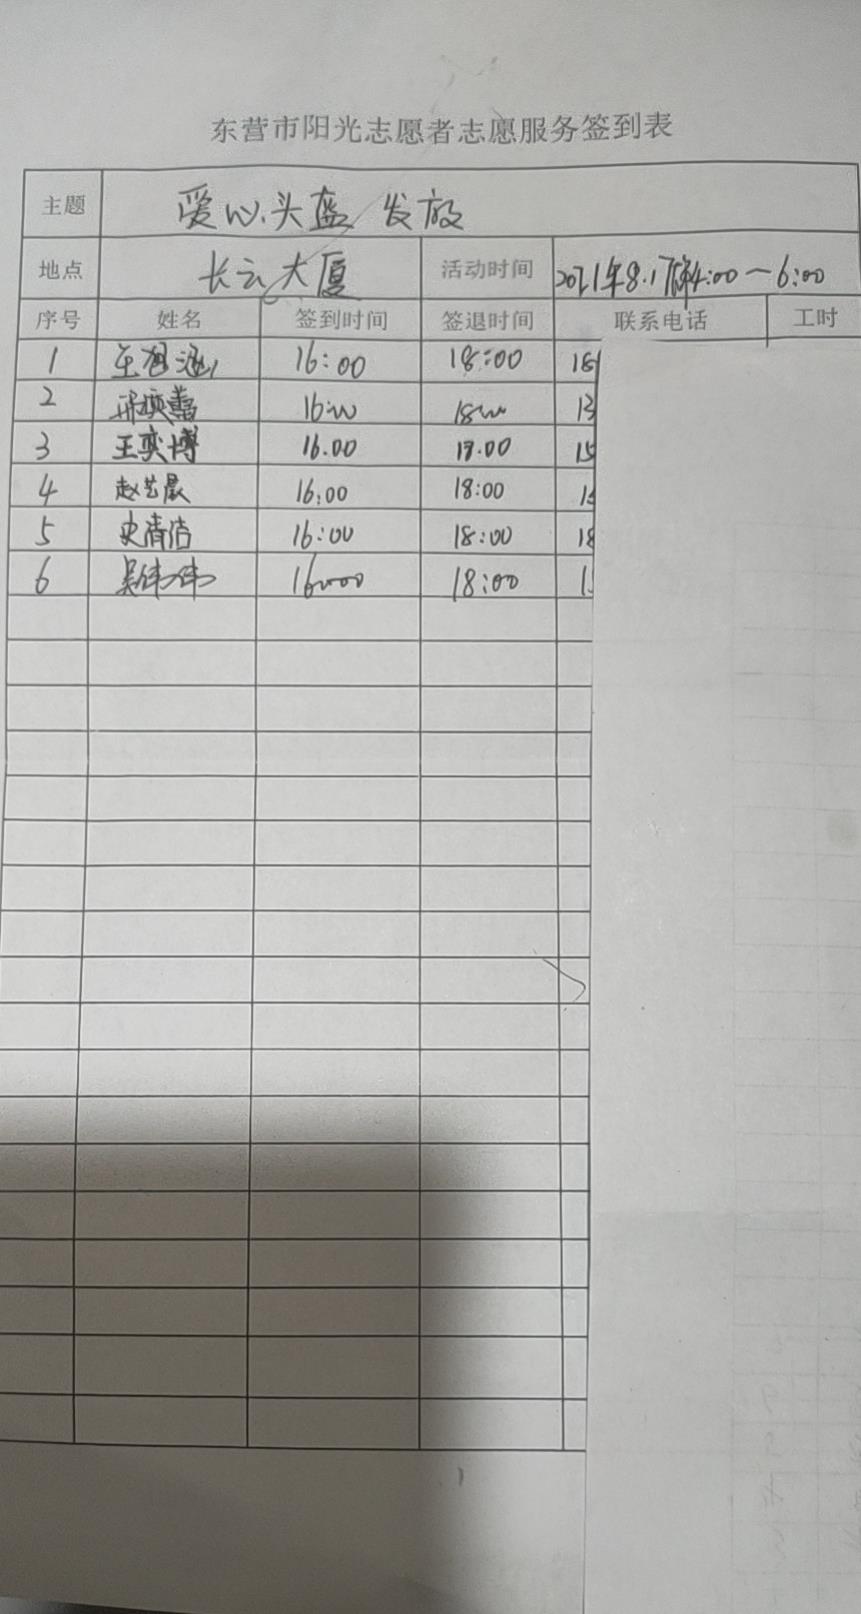 东营市阳光志愿者志愿服务签到表
主题 爱心头盔 发放
地点 长云大厦 活动时间 2021年8.17 4:00—6:00
序号 姓名 签到时间 签退时间 联系电话 工时
1 16:00 18:00 18
2 16:00 18:00 13
3 王奕博 16.00 18.00 15
4 赵艺晨 16:00 18:00
5 史清洁 16:00 18:00 18
6 吴伟伟 16:00 18:00